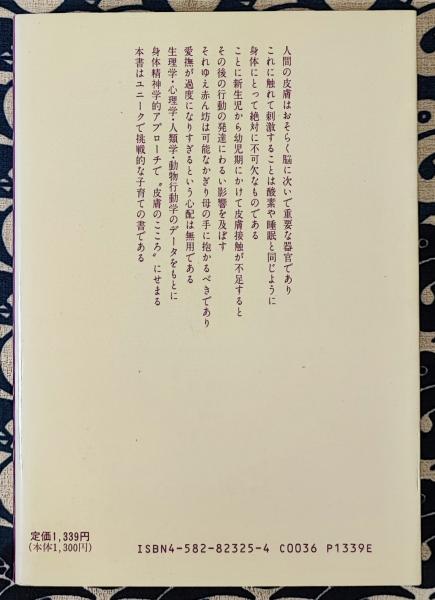 人間の皮膚はおそらく脳に次いで重要な器官であり
これに触れて刺激することは酸素や睡眠と同じように
身体にとって絶対に不可欠なものである
ことに新生児から幼児期にかけて皮膚接触が不足すると
その後の行動の発達にわるい影響を及ぼす
それゆえ赤ん坊は可能なかぎり母の手に抱かるべきであり
愛撫が過度になりすぎるという心配は無用である
生理学・心理学・人類学・動物行動学のデータをもとに
身体精神学的アプローチで〝皮膚のこころ〟にせまる
本書はユニークで挑戦的な子育ての書である
定価1,339円
(本体1,300円)
ISBN4-582-82325-4 C0036 P1339E